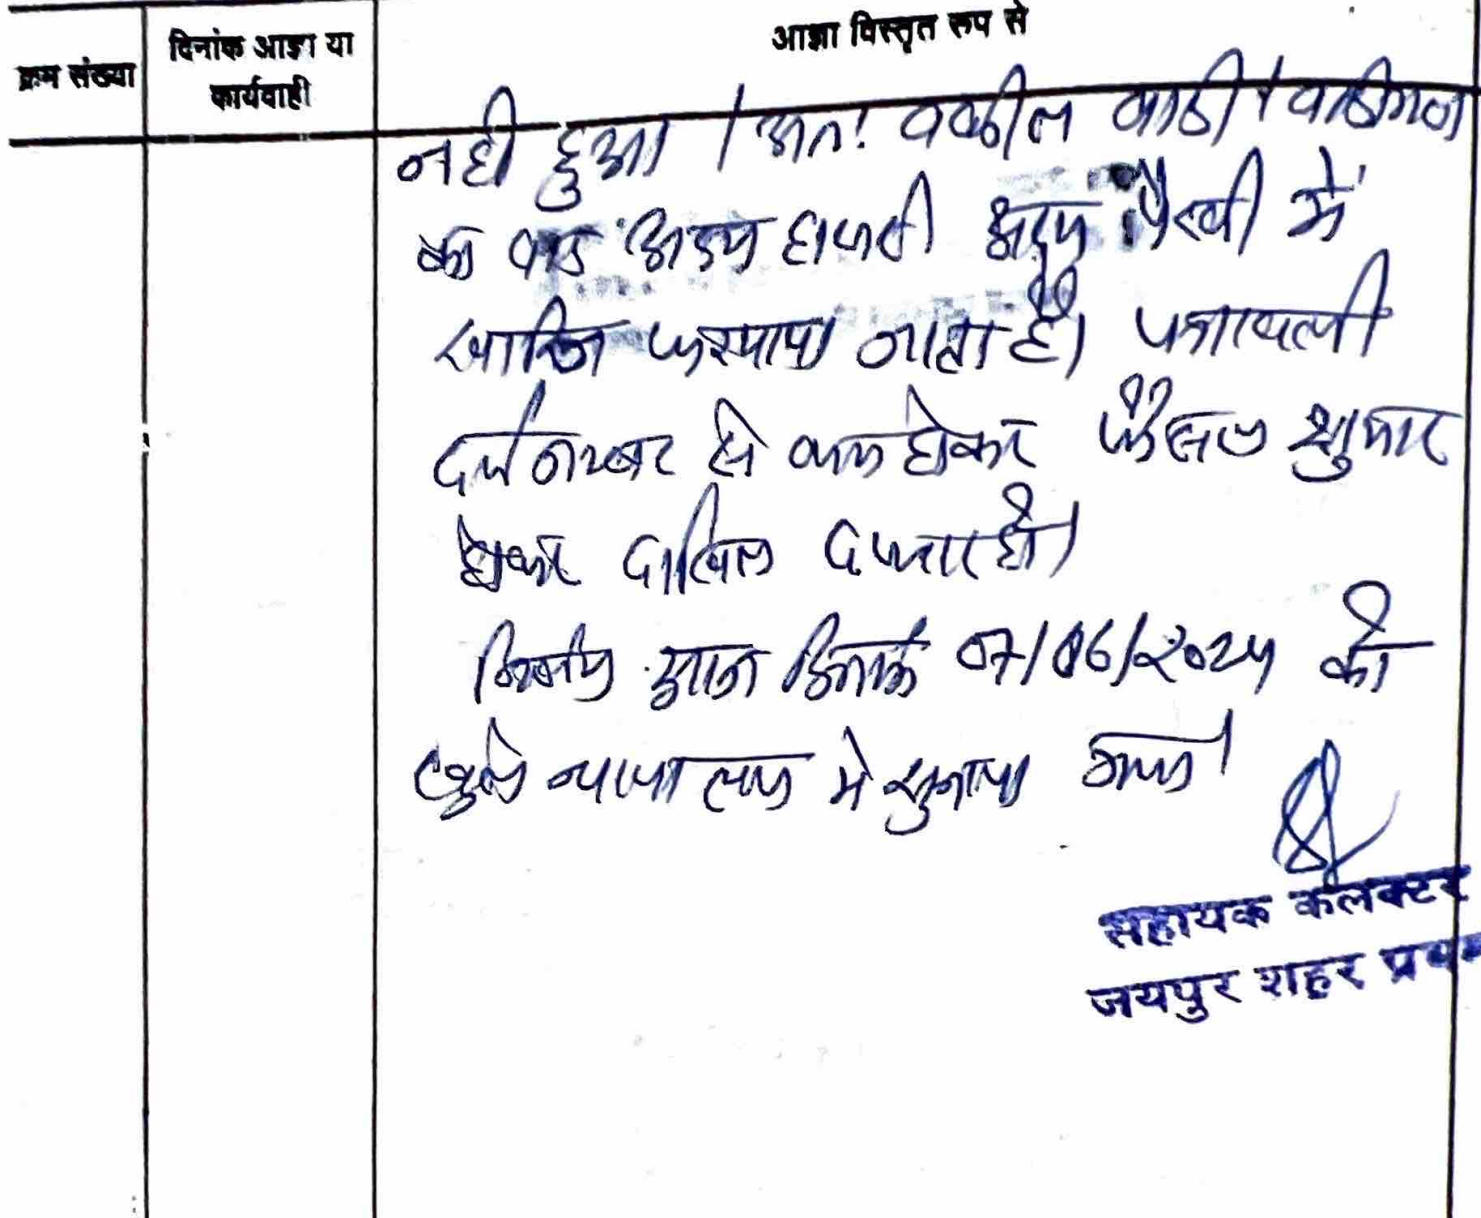 क्रम संख्या
दिनांक आज्ञा या
कार्यवाही
आज्ञा विस्तृत रूप से
नही हुआ। अतः वकील वादी / वादीगण
का वाद अदम हाजरी अदम पैरवी में
खारिज फरमाया जाता है। पत्रावली
दर्ज नम्बर से कम होकर फैसल शुमार
होकर दाखिल दफ्तर हो।
निर्णय आज दिनांक 07/06/2024 को
खुले न्यायालय मे सुनाया गया।
सहायक कलक्टर
जयपुर शहर प्रथम